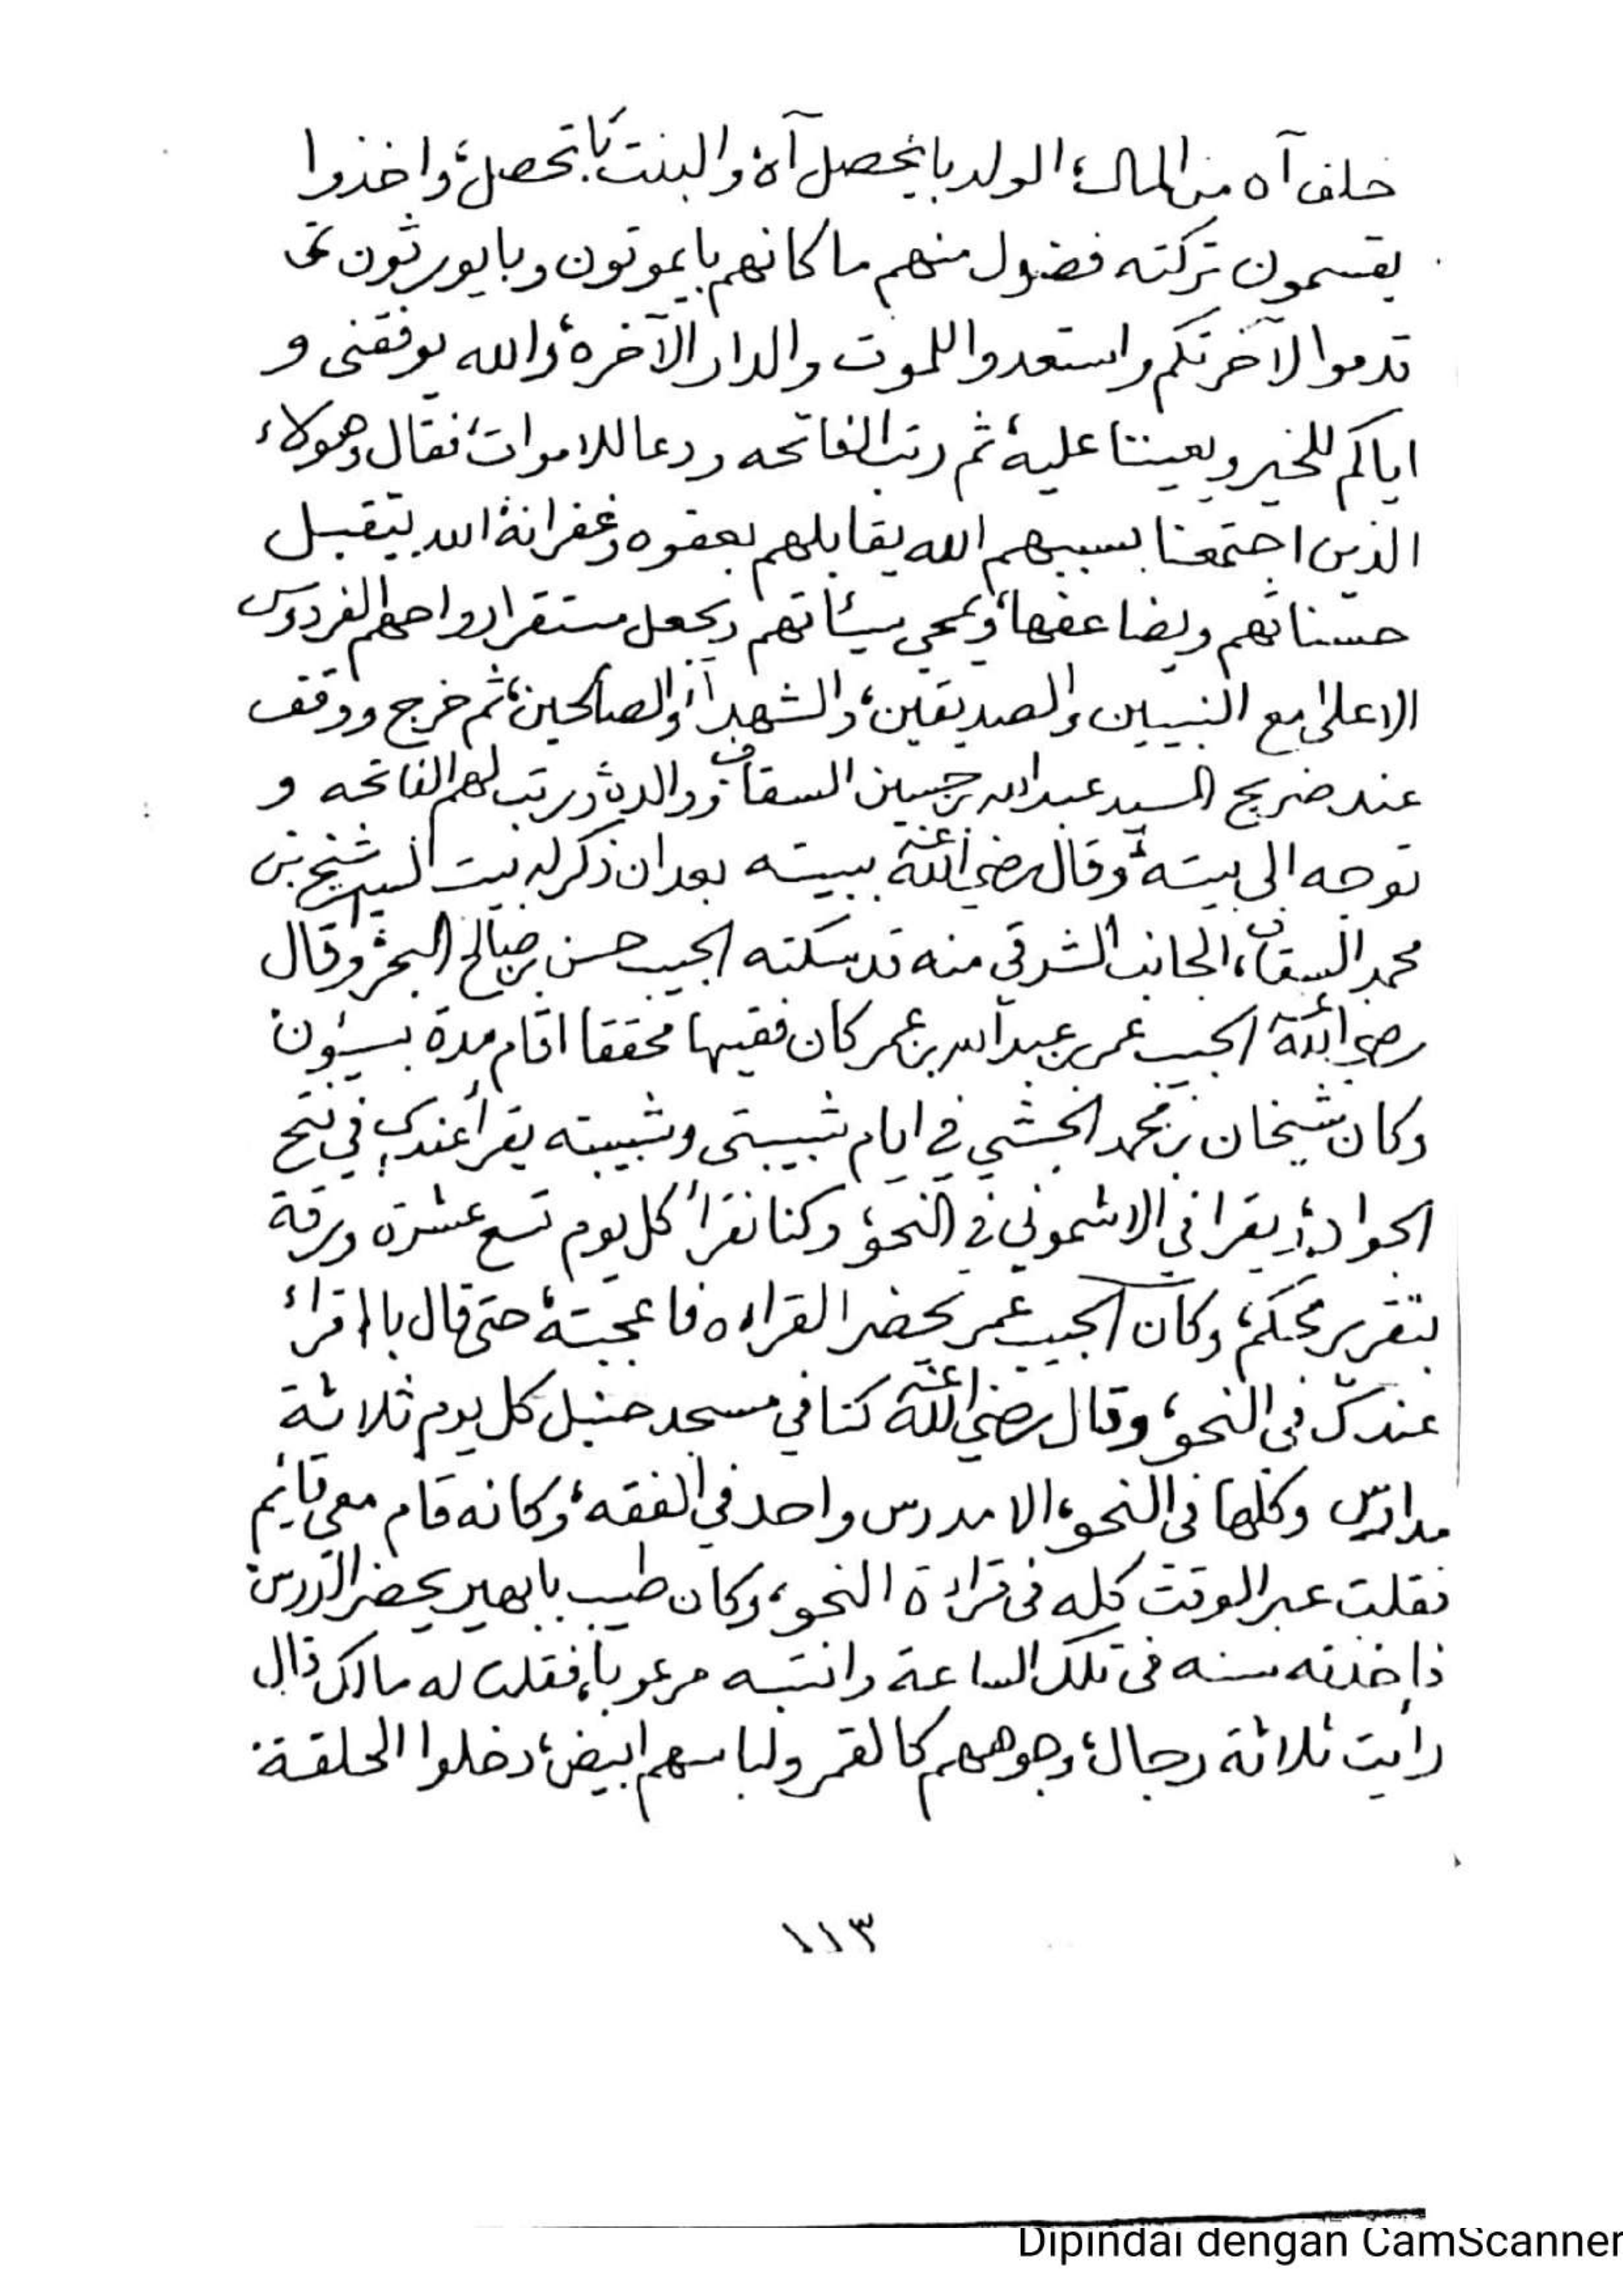 خلف آه من المال، الولد با يحصل آه، والبنت با تحصل، واخذوا
يقسمون تركته فضول منهم ما كانهم با يموتون وبا يورثون
قدموا لآخرتكم واستعدوا للموت والدار الآخرة، والله يوفقني و
اياكم للخير ويعيننا عليه، ثم رتب الفاتحه ودعا للاموات، فقال وهولاء
الذين اجتمعنا بسببهم الله يقابلهم بعفوه وغفرانه، الله يتقبل
حسناتهم ويضاعفها، ويمحي سيئاتهم ويجعل مستقر ارواحهم الفردوس
الاعلى مع النبيين والصديقين، والشهدآء، والصالحين، ثم خرج ووقف
عند ضريح السيد عبدالله بن حسين السقاف، ووالده، ورتب لهم الفاتحه و
توجه الى بيته، وقال رضي الله عنه ببيته بعد ان ذكر له بيت السيد شيخ بن
محمد السقاف، الجانب الشرقي منه قد سكنته الحبيب حسن بن صالح البحر، وقال
رضي الله عنه الحبيب عمر بن عبدالله بن عمر كان فقيها محققا اقام مدة بسيؤن
وكان شيخان بن محمد الحبشي في ايام شبيبتي وشبيبته يقرأ عندي في فتح
الجواد، ويقرا في الاشموني في النحو، وكنا نقرأ كل يوم تسع عشرة ورقة
بتقرير محكم، وكان الحبيب عمر يحضر القراءه فاعجبته، حتى قال با اقراء
عندك في النحو، وقال رضي الله عنه كنا في مسجد حنبل كل يوم ثلاثة
مدارس وكلها في النحو، الا مدرس واحد في الفقه، وكانه قام معي قايم
فقلت عبر الوقت كله في قراءة النحو، وكان طيب بابهير يحضر الدرس
فاخذته سنه في تلك الساعة وانتبه مرعوبا، فقلت له مالك قال
رايت ثلاثة رجال، وجوههم كالقمر ولباسهم ابيض، دخلوا الحلقة
١١٣
Dipindai dengan CamScanner